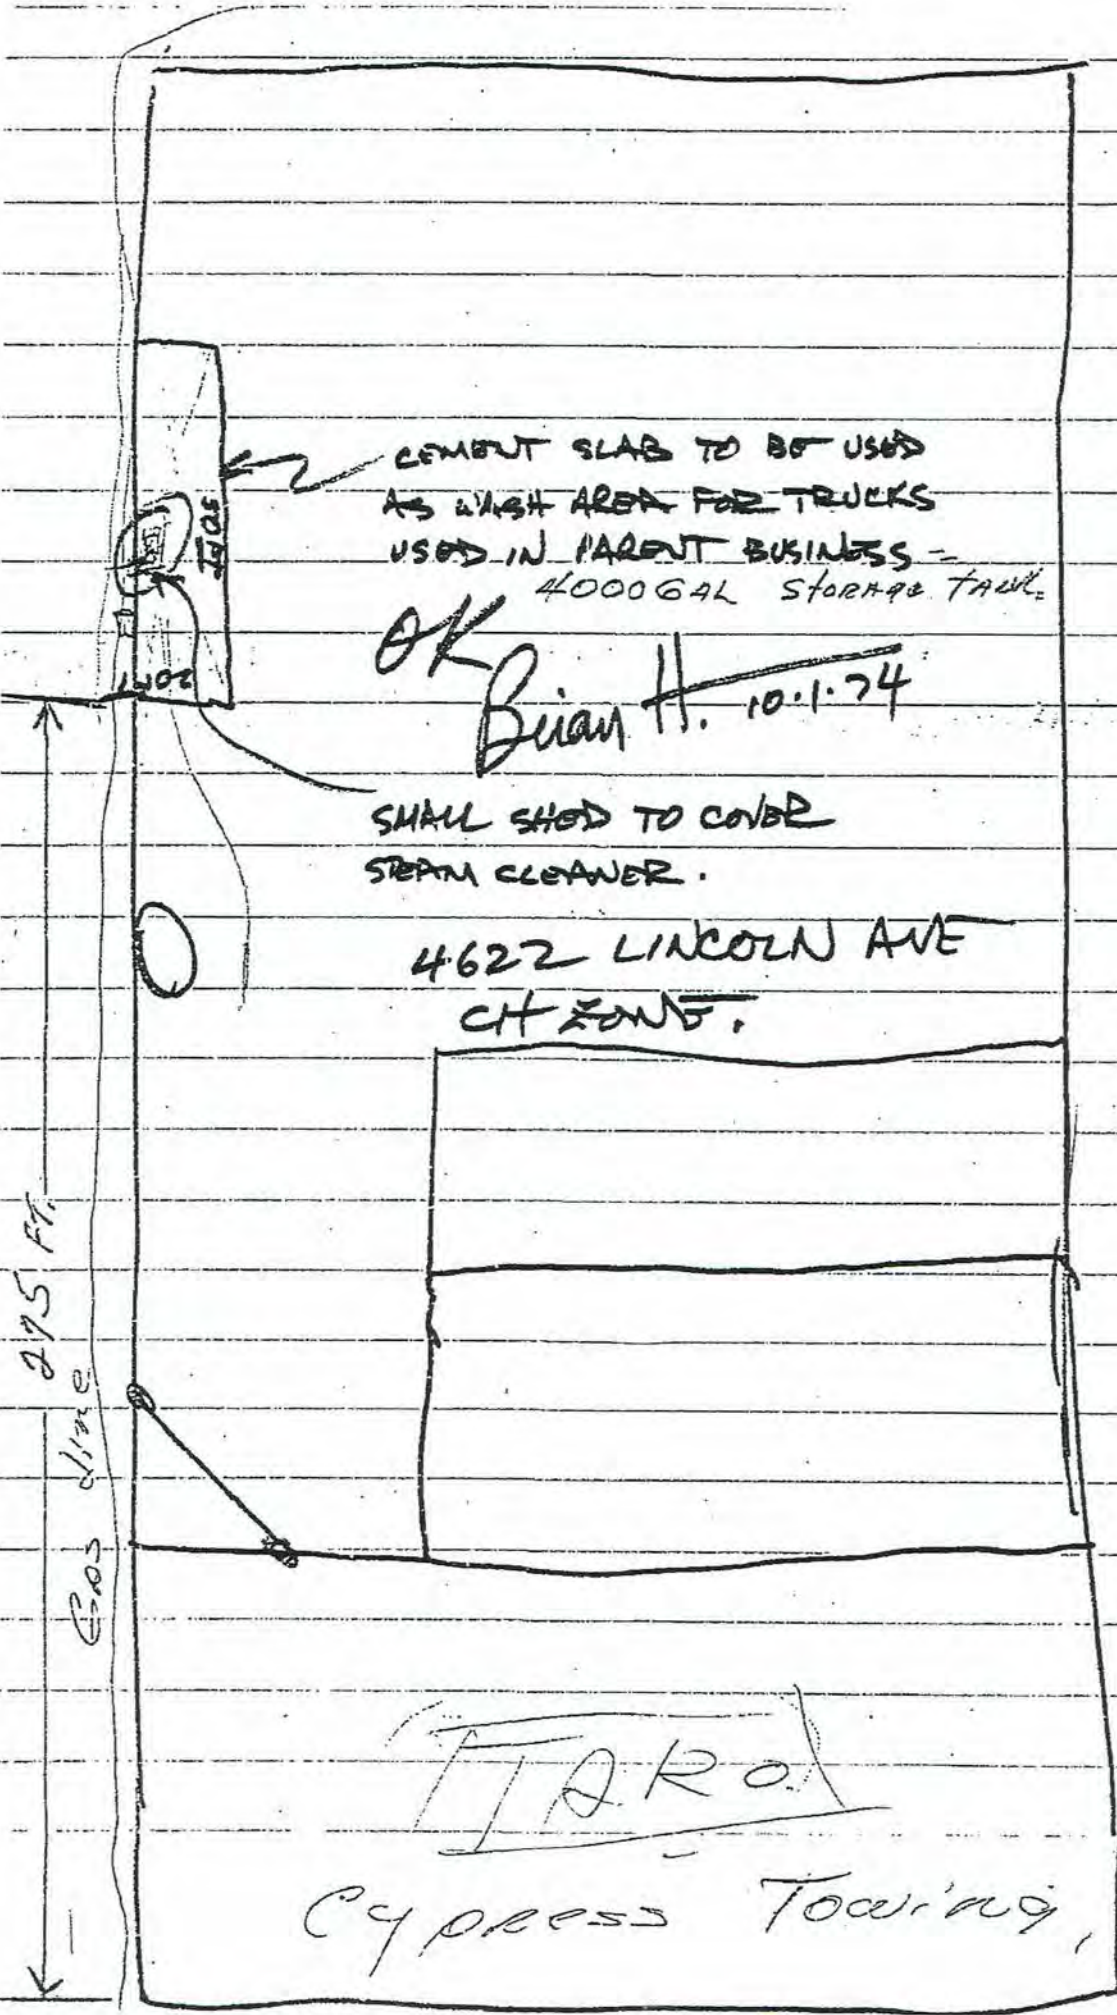 CEMENT SLAB TO BE USED
AS WASH AREA FOR TRUCKS
USED IN PARENT BUSINESS -
4000 GAL STORAGE TANK.
50FT
20FT
OK
Brian H. 10.1.74
SMALL SHED TO COVER
STEAM CLEANER.
4622 LINCOLN AVE
CH ZONE.
275 FT.
Gas Line
TARO
Cypress Towing,